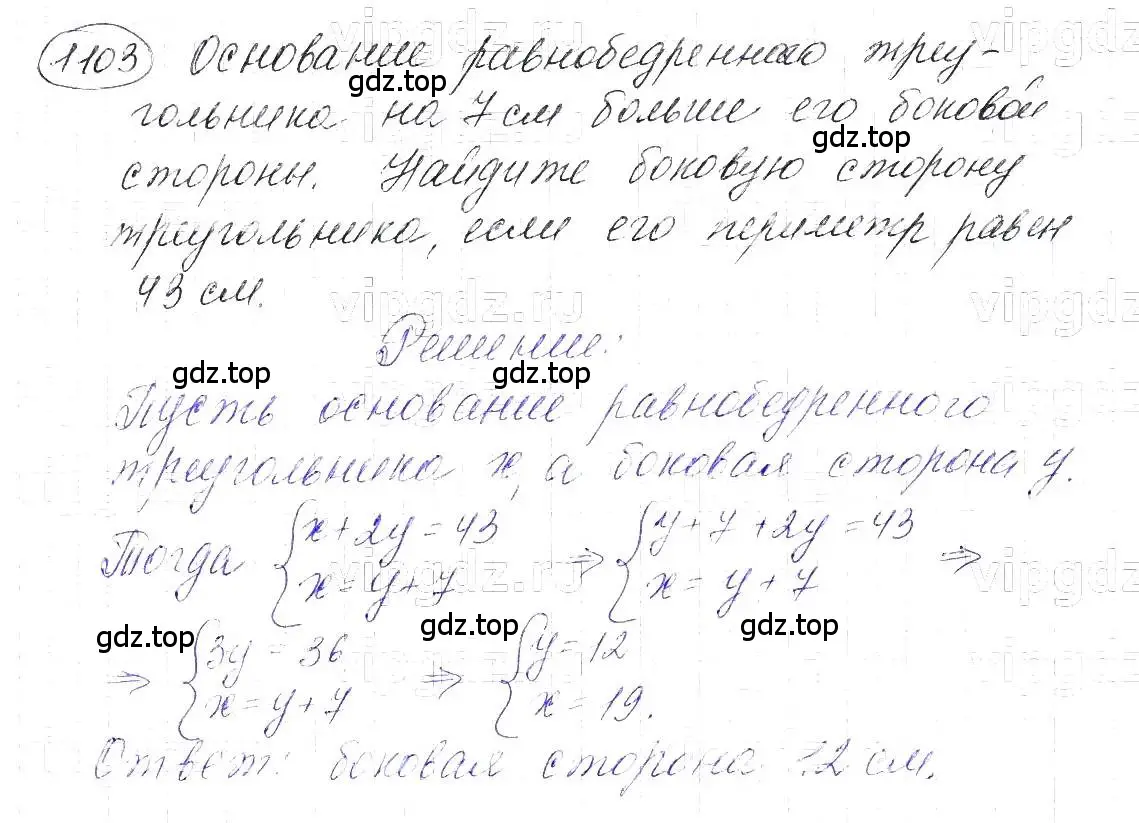 1103 Основание равнобедренного треу-
гольника на 7 см больше его боковой
стороны. Найдите боковую сторону
треугольника, если его периметр равен
43 см.
Решение:
Пусть основание равнобедренного
треугольника x, а боковая сторона y.
Тогда { x + 2y = 43 ⇒ { y + 7 + 2y = 43 ⇒
x = y + 7 x = y + 7
⇒ { 3y = 36 ⇒ { y = 12
x = y + 7 x = 19.
Ответ: боковая сторона 12 см.
gdz.top
gdz.top
gdz.top
gdz.top
gdz.top
gdz.top
gdz.top
vipgdz.ru
vipgdz
vipgdz.ru
vipgdz
vipgdz.ru
vipgdz
vipgdz.ru
vipgdz